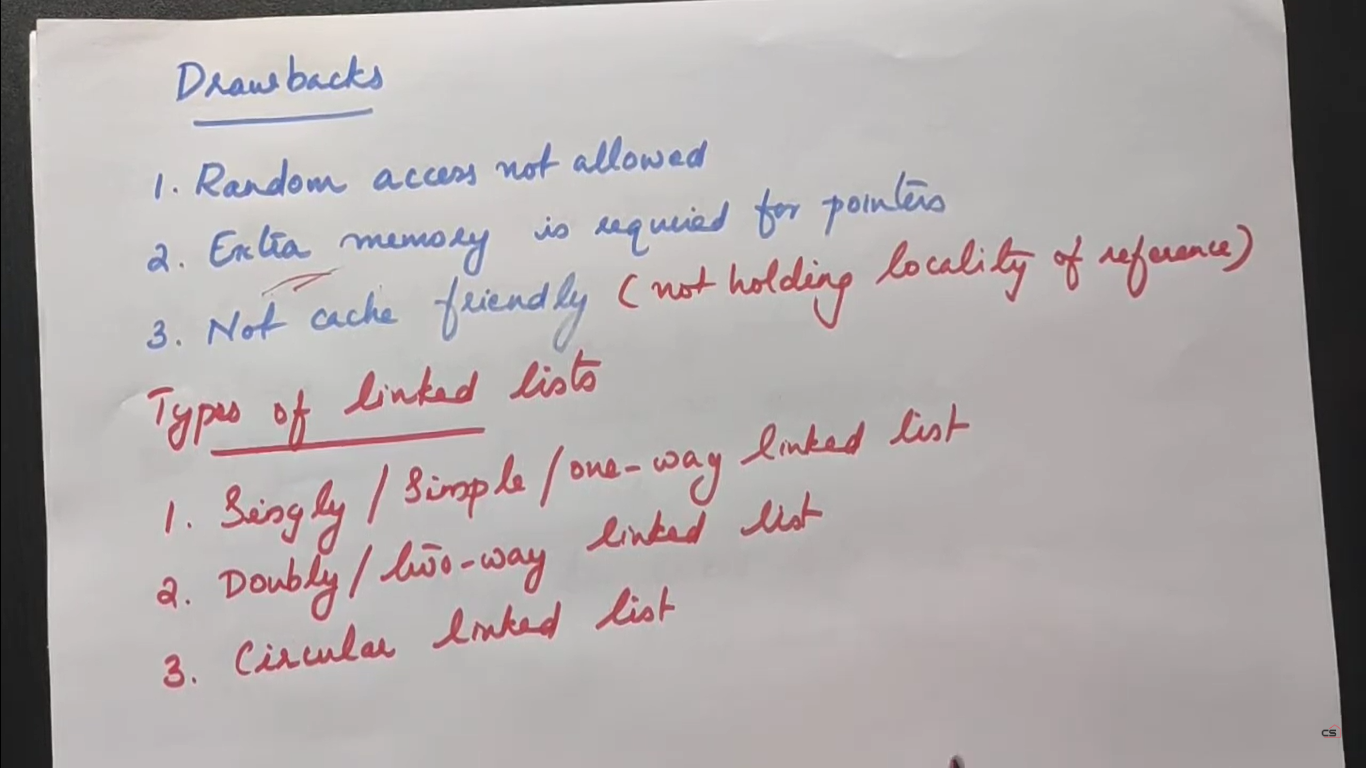 Drawbacks
1. Random access not allowed
2. Extra memory is required for pointers
3. Not cache friendly (not holding locality of reference)
Types of linked lists
1. Singly / Simple / one-way linked list
2. Doubly / two-way linked list
3. Circular linked list
CS